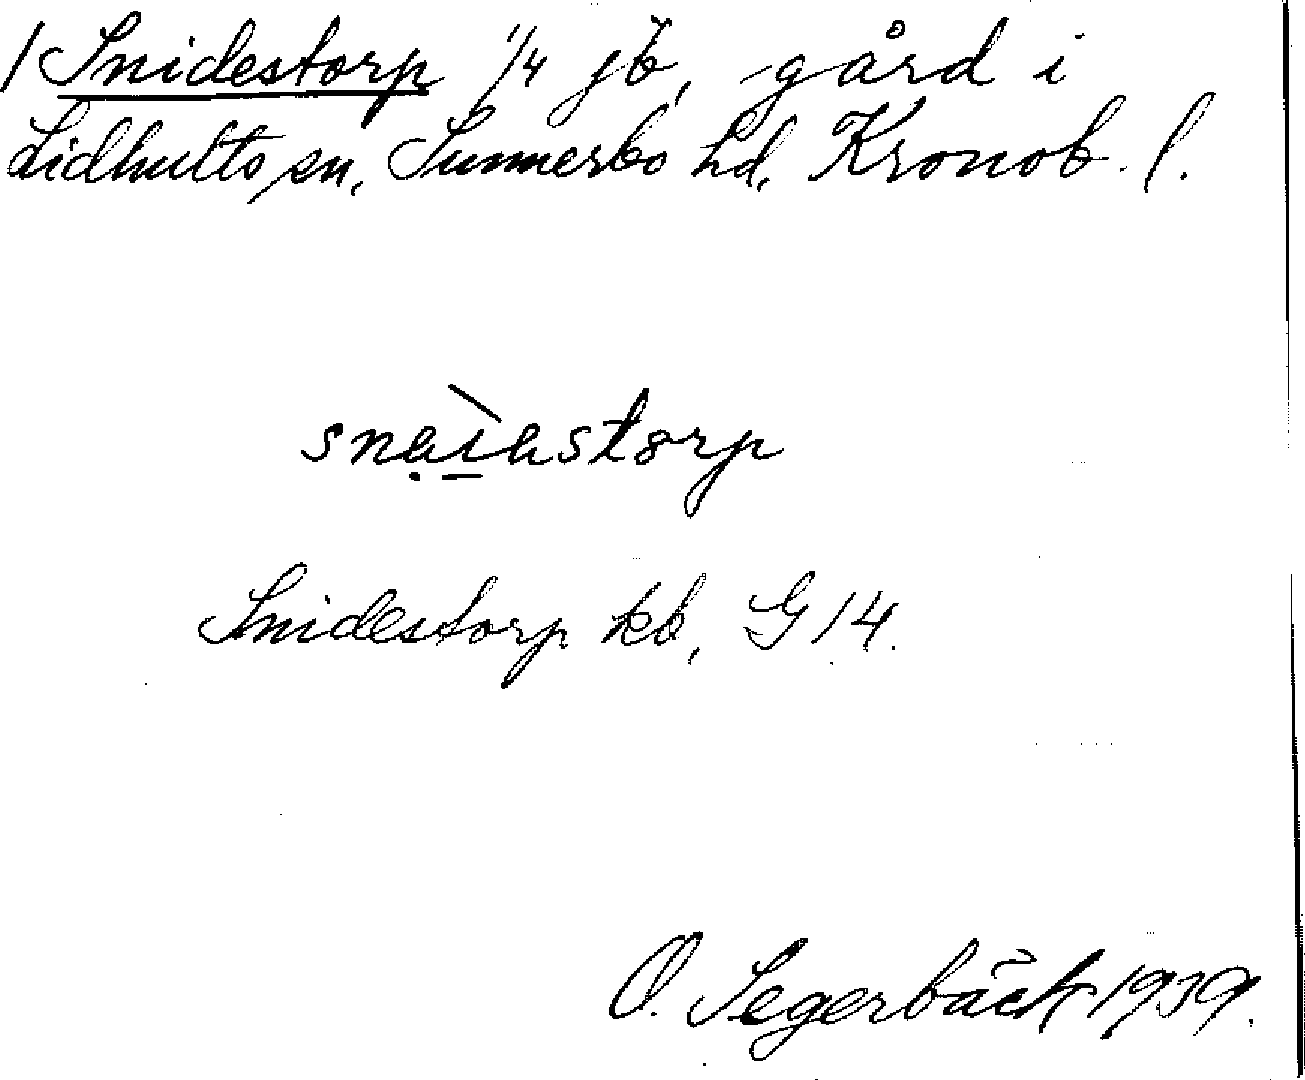 / Snidestorp 1/4 jb, gård i
Lidhults sn, Sunnerbo hd, Kronob. l.
snaiastorp
Snidestorp kb, G 14.
O. Segerbäck 1939.